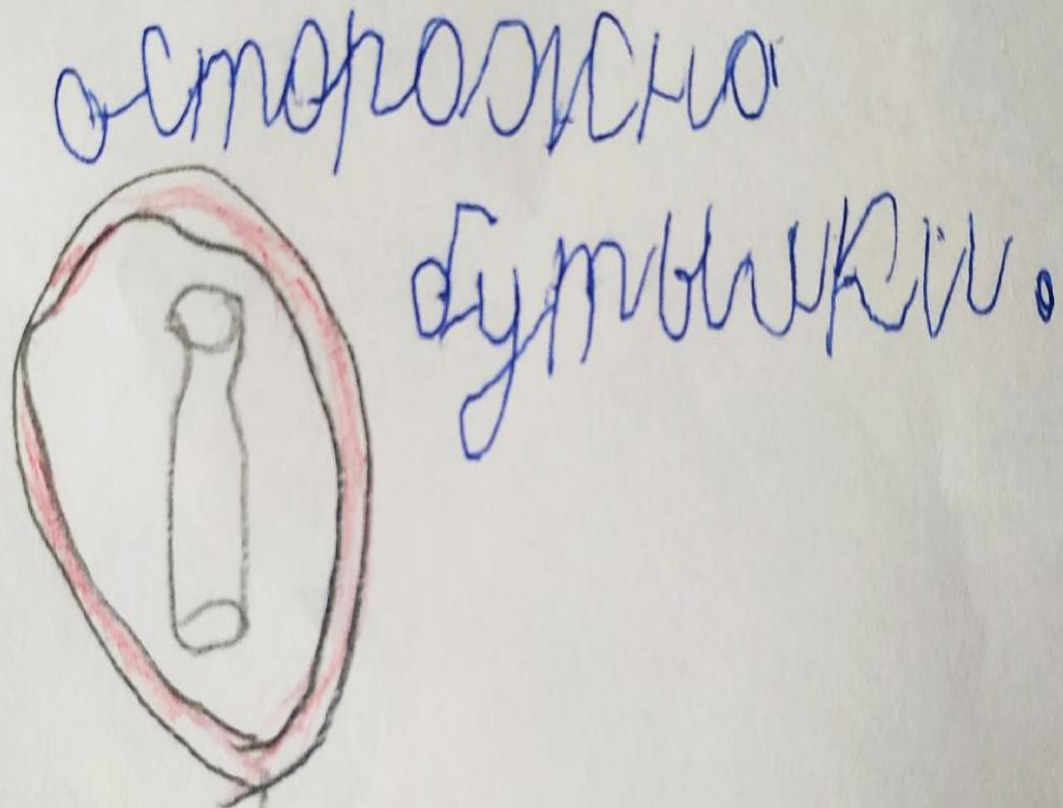 осторожно
бутылки.